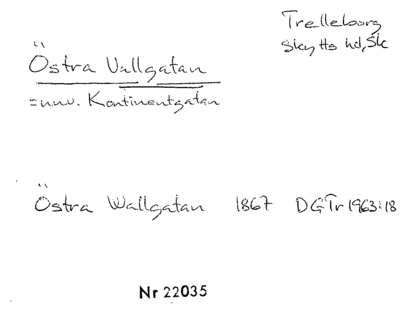 Trelleborg
Skytts hd, Sk
Östra Vallgatan
= nuv. Kontinentgatan
Östra Wallgatan 1867 DGTr 1963:18
Nr 22035